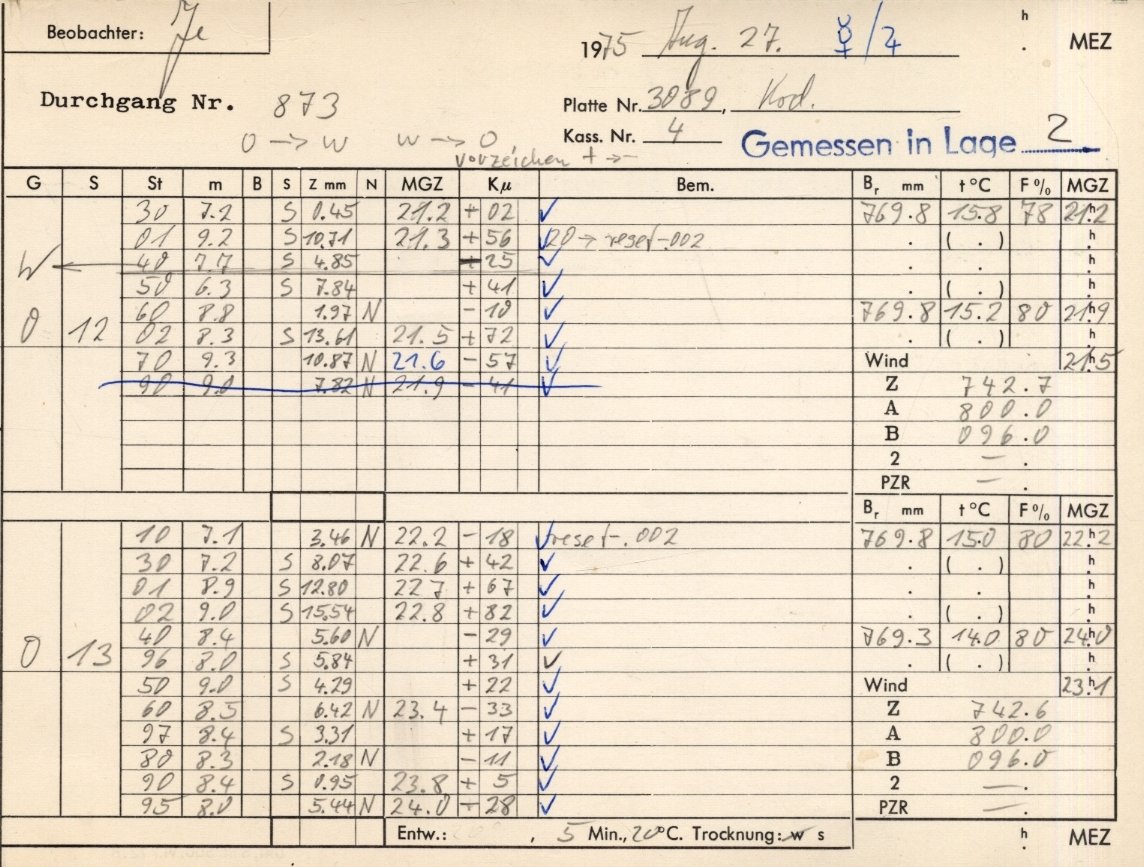 Beobachter: Je
1975 Aug. 27. ☿/4 h . MEZ
Durchgang Nr. 873
Platte Nr. 3089, Kod.
O → W W → O
Kass. Nr. 4
Vorzeichen + → -
Gemessen in Lage 2
G S St m B S Z mm N MGZ Kμ Bem. Br mm t °C F % MGZ
30 7.2 S 0.45 21.2 + 02 ✓ 769.8 15.8 78 21h2
01 9.2 S 10.71 21.3 + 56 ✓ 20 → reset -.002 . ( . ) h
W ← 40 7.7 S 4.85 + 25 ✓ . . h
50 6.3 S 7.84 + 41 ✓ . ( . ) h
60 8.8 1.97 N - 10 ✓ 769.8 15.2 80 21h9
O 12 02 8.3 S 13.61 21.5 + 72 ✓ . ( . ) h
70 9.3 10.87 N 21.6 - 57 ✓ Wind 21h5
90 9.0 7.82 N 21.9 - 41 ✓ Z 742.7
A 800.0
B 096.0
2 — .
PZR — .
Br mm t °C F % MGZ
10 7.1 3.46 N 22.2 - 18 ✓ reset -.002 769.8 15.0 80 22h2
30 7.2 S 8.07 22.6 + 42 ✓ . ( . ) h
01 8.9 S 12.80 22.7 + 67 ✓ . . h
02 9.0 S 15.54 22.8 + 82 ✓ . ( . ) h
40 8.4 5.60 N - 29 ✓ 769.3 14.0 80 24h0
O 13 96 8.0 S 5.84 + 31 ✓ . ( . ) h
50 9.0 S 4.29 + 22 ✓ Wind 23h1
60 8.5 6.42 N 23.4 - 33 ✓ Z 742.6
97 8.4 S 3.31 + 17 ✓ A 800.0
80 8.3 2.18 N - 11 ✓ B 096.0
90 8.4 S 0.95 23.8 + 5 ✓ 2 — .
95 8.0 5.44 N 24.0 - 28 ✓ PZR — .
Entw.: , 5 Min., 20°C. Trocknung: w s h . MEZ